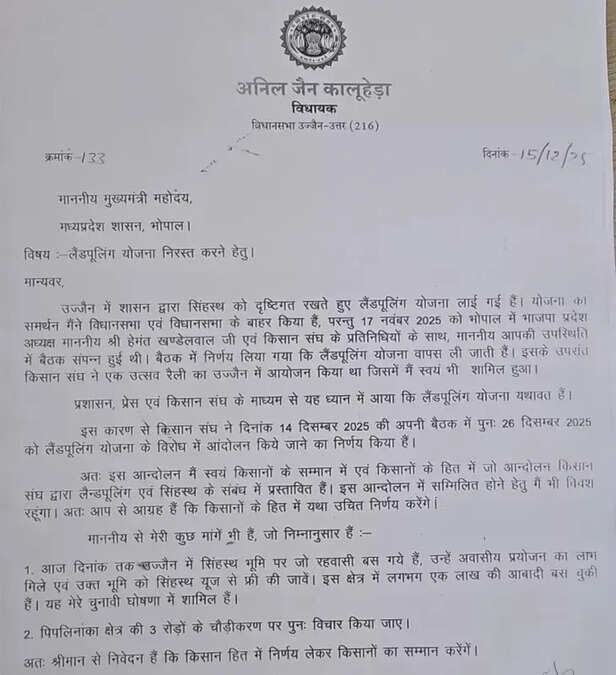 अनिल जैन कालूहेड़ा
विधायक
विधानसभा उज्जैन-उत्तर (216)
क्रमांक-133
दिनांक-15/12/25
माननीय मुख्यमंत्री महोदय,
मध्यप्रदेश शासन, भोपाल।
विषय :–लैंडपूलिंग योजना निरस्त करने हेतु।
मान्यवर,
उज्जैन में शासन द्वारा सिंहस्थ को दृष्टिगत रखते हुए लैंडपूलिंग योजना लाई गई हैं। योजना का
समर्थन मैंने विधानसभा एवं विधानसभा के बाहर किया हैं, परन्तु 17 नवंबर 2025 को भोपाल में भाजपा प्रदेश
अध्यक्ष माननीय श्री हेमंत खण्डेलवाल जी एवं किसान संघ के प्रतिनिधियों के साथ, माननीय आपकी उपस्थिति
में बैठक संपन्न हुई थी। बैठक में निर्णय लिया गया कि लैंडपूलिंग योजना वापस ली जाती हैं। इसके उपरांत
किसान संघ ने एक उत्सव रैली का उज्जैन में आयोजन किया था जिसमें मैं स्वयं भी शामिल हुआ।
प्रशासन, प्रेस एवं किसान संघ के माध्यम से यह ध्यान में आया कि लैंडपूलिंग योजना यथावत हैं।
इस कारण से किसान संघ ने दिनांक 14 दिसम्बर 2025 की अपनी बैठक में पुनः 26 दिसम्बर 2025
को लैंडपूलिंग योजना के विरोध में आंदोलन किये जाने का निर्णय किया हैं।
अतः इस आन्दोलन मैं स्वयं किसानों के सम्मान में एवं किसानों के हित में जो आन्दोलन किसान
संघ द्वारा लैन्डपूलिंग एवं सिंहस्थ के संबंध में प्रस्तावित हैं। इस आन्दोलन में सम्मिलित होने हेतु मैं भी विवश
रहूंगा। अतः आप से आग्रह हैं कि किसानों के हित में यथा उचित निर्णय करेंगे।
माननीय से मेरी कुछ मांगें भी हैं, जो निम्नानुसार हैं :–
1. आज दिनांक तक उज्जैन में सिंहस्थ भूमि पर जो रहवासी बस गये हैं, उन्हें अवासीय प्रयोजन का लाभ
मिले एवं उक्त भूमि को सिंहस्थ यूज से फ्री की जावें। इस क्षेत्र में लगभग एक लाख की आबादी बस चुकी
हैं। यह मेरे चुनावी घोषणा में शामिल हैं।
2. पिपलिनांका क्षेत्र की 3 रोड़ों के चौड़ीकरण पर पुनः विचार किया जाए।
अतः श्रीमान से निवेदन हैं कि किसान हित में निर्णय लेकर किसानों का सम्मान करेंगें।